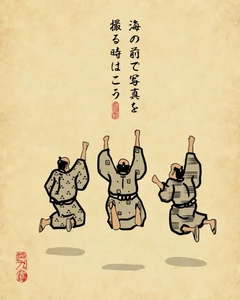 海の前で写真を
撮る時はこう